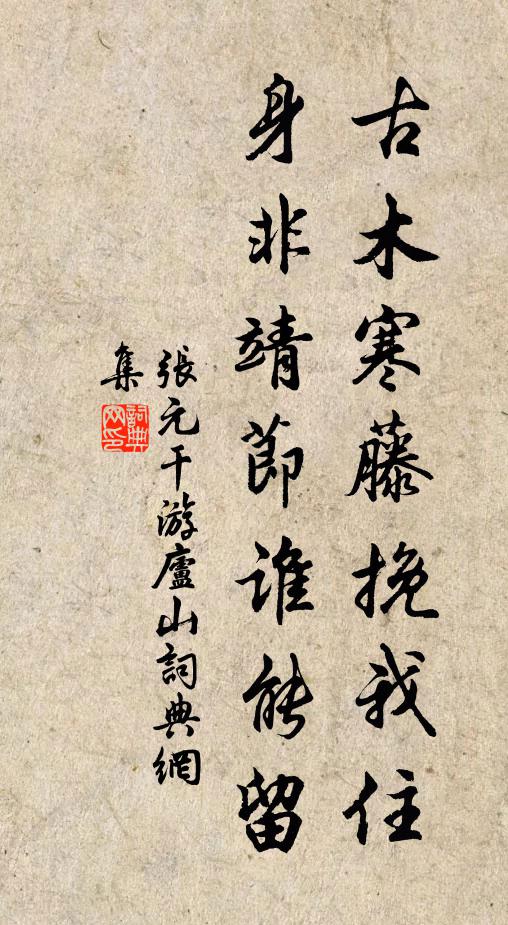 古木寒藤挽我住
身非靖節誰能留
張元干游廬山詞典網
集
詞典网印